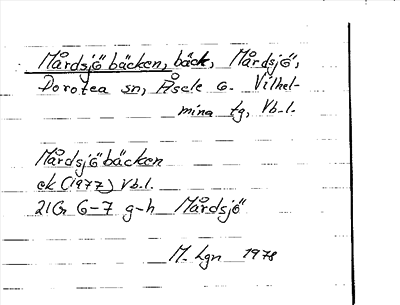 Mårdsjöbäcken, bäck, Mårdsjö,
Dorotea sn, Åsele o. Vilhel-
mina tg, Vb.l.
Mårdsjöbäcken
ek (1977) Vb.l.
21G 6-7 g-h Mårdsjö
M. Lgn 1978